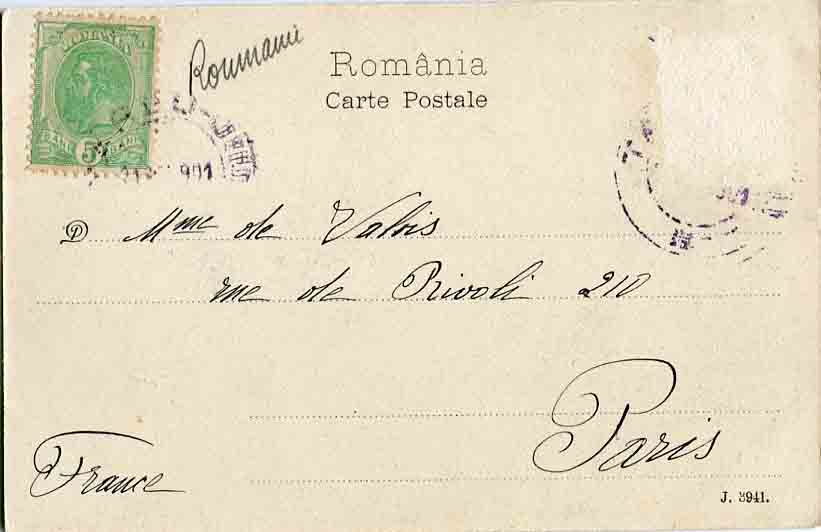 ROMANIA
BANI 5 BANI
901
Roumanie
România
Carte Postale
901
D Mme de Valois
rue de Rivoli 210
Paris
France
J. 3941.